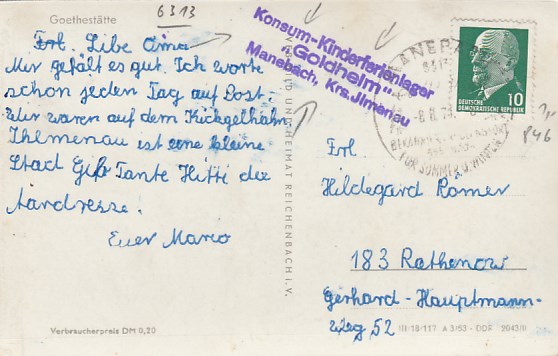 Goethestätte
6313
Frl. Libe Oma
Mir gefält es gut. Ich worte
schon jeden Tag auf Post.
Wir waren auf dem Kickgelhahn
Ihlmenau ist eine kleine
Stad Gib Tante Hitti die
Aardresse.
Euer Mario
Verbraucherpreis DM 0,20
BILD UND HEIMAT REICHENBACH i. V.
Konsum-Kinderferienlager
"Goldheim"
Manebach, Krs. Jlmenau
DEUTSCHE
DEMOKRATISCHE REPUBLIK
10
FÜR SOMMER U. WINTER
P46
Frl
Hildegard Romer
183 Rathenow
Gerhard-Hauptmann-
Weg 52
III/18/117 A 3/63 DDF 2043/II